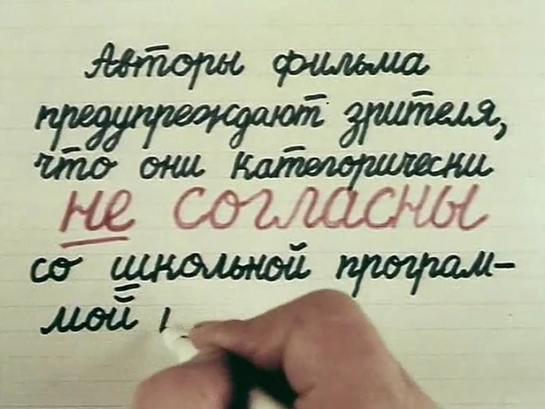 Авторы фильма
предупреждают зрителя,
что они категорически
не согласны
со школьной програм-
мой